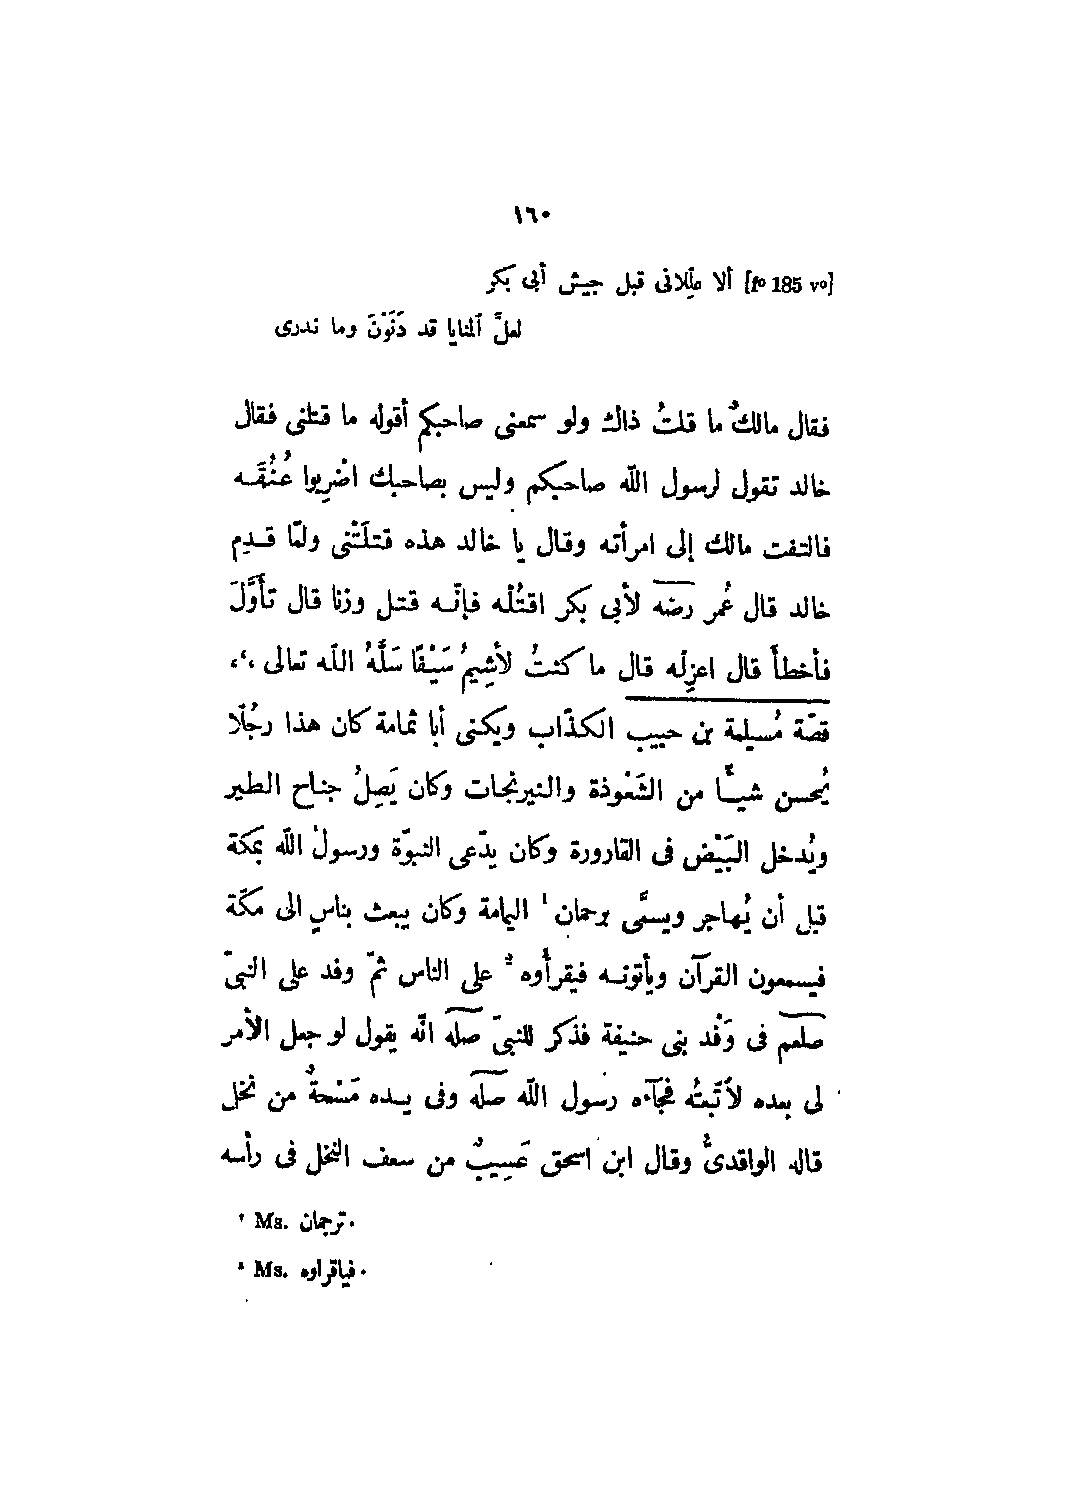 ١٦٠
[fo 185 vo] ألا علّلانى قبل جيش أبى بكر
لعلَّ ٱلمنايا قد دَنَوْنَ وما ندرى
فقال مالكٌ ما قلتُ ذاك ولو سمعنى صاحبكم أقوله ما قتلنى فقال
خالد تقول لرسول اللّه صاحبكم وليس بصاحبك اضْرِبوا عُنُقَـه
فالتفت مالك إلى امرأته وقال يا خالد هذه قتلَتْنى ولمّا قـدِم
خالد قال عُمر رضه لأبى بكر اقتُلْه فإنّـه قتـل وزنا قال تأوَّلَ
فأخطأ قال اعزِله قال ما كنتُ لأَشِيمُ سَيْفًا سَلَّهُ اللّه تعالى ،‘،
قصّة مُسيلمة بن حبيب الكذّاب ويكنى أبا ثمامة كان هذا رجُلًا
يُحسن شيـئًـا من الشَعْوذة والنيرنجات وكان يَصِلُ جناح الطير
ويُدخل البَيْض فى القارورة وكان يدّعى النبوّة ورسولُ اللّه بمكة
قبل أن يُهاجر ويسمَّى برحمان ¹ اليمامة وكان يبعث بناسٍ الى مكّة
فيسمعون القرآن ويأتونـه فيقرأوه ² على الناس ثمّ وفد على النبىّ
صلعم فى وَفْد بنى حنيفة فذكر للنبىّ صلّه انّه يقول لو جعل الأمر
لى بعده لأتّبعتُه فجآءه رسول اللّه صلّه وفى يـده مَسْحةٌ من نخل
قاله الواقدىُّ وقال ابن اسحق عَسِيبٌ من سعف النخل فى رأسه
¹ Ms. ترجمان.
² Ms. فياقراوه.